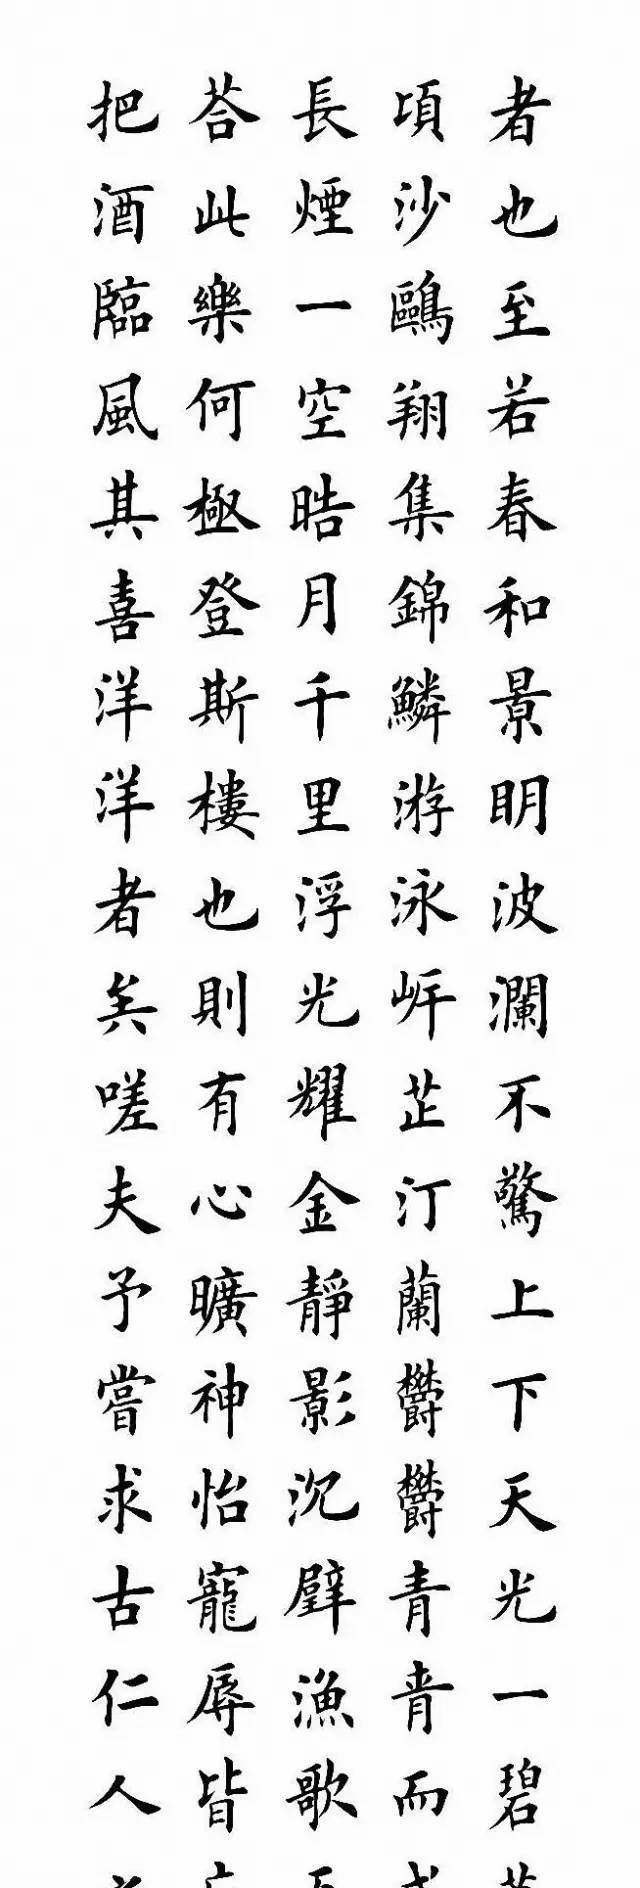 者也至若春和景明波瀾不驚上下天光一碧
頃沙鷗翔集錦鱗游泳岸芷汀蘭欝欝青青而
長煙一空皓月千里浮光耀金靜影沉璧漁歌
荅此樂何極登斯樓也則有心曠神怡寵辱皆
把酒臨風其喜洋洋者矣嗟夫予嘗求古仁人